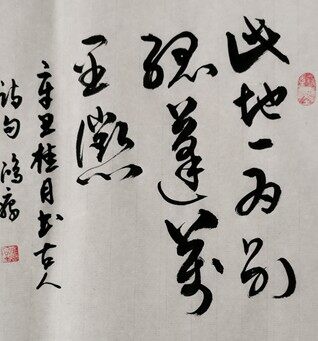 此地一为别
孤蓬萬
里懲
辛丑桂月书古人
诗句鸿